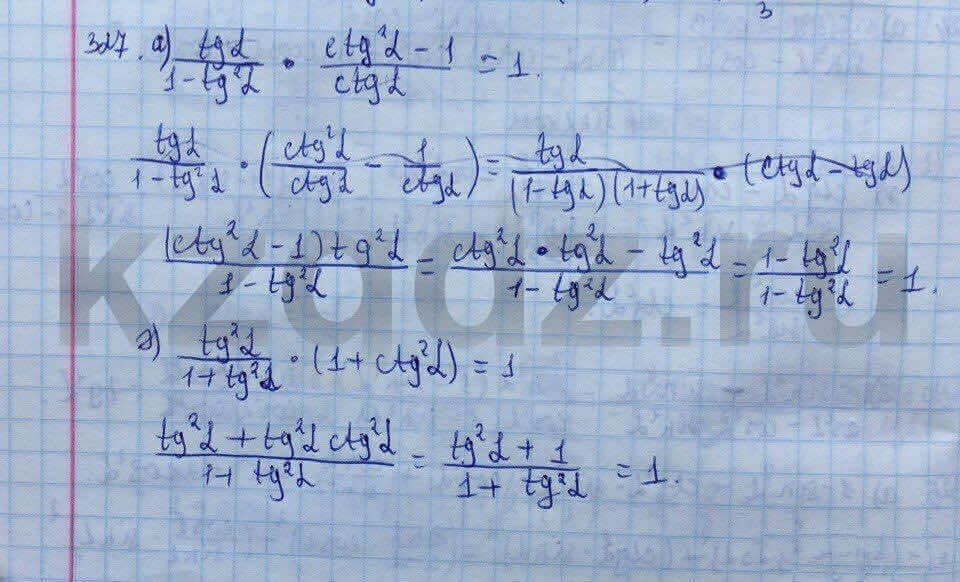 327. а) tgα / (1 - tg²α) • (ctg²α - 1) / ctgα = 1.
tgα / (1 - tg²α) • (ctg²α / ctgα - 1 / ctgα) = tgα / (1 - tgα)(1 + tgα) • (ctgα - tgα)
(ctg²α - 1) tg²α / (1 - tg²α) = (ctg²α • tg²α - tg²α) / (1 - tg²α) = (1 - tg²α) / (1 - tg²α) = 1.
kzgdz.ru
д) tg²α / (1 + tg²α) • (1 + ctg²α) = 1
(tg²α + tg²α ctg²α) / (1 + tg²α) = (tg²α + 1) / (1 + tg²α) = 1.